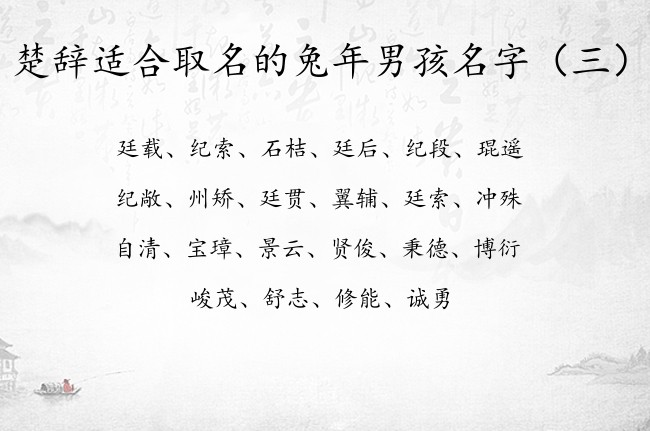 楚辞适合取名的兔年男孩名字（三）
廷载、纪索、石桔、廷后、纪段、琨遥
纪敞、州矫、廷贯、翼辅、廷索、冲殊
自清、宝璋、景云、贤俊、秉德、博衍
峻茂、舒志、修能、诚勇